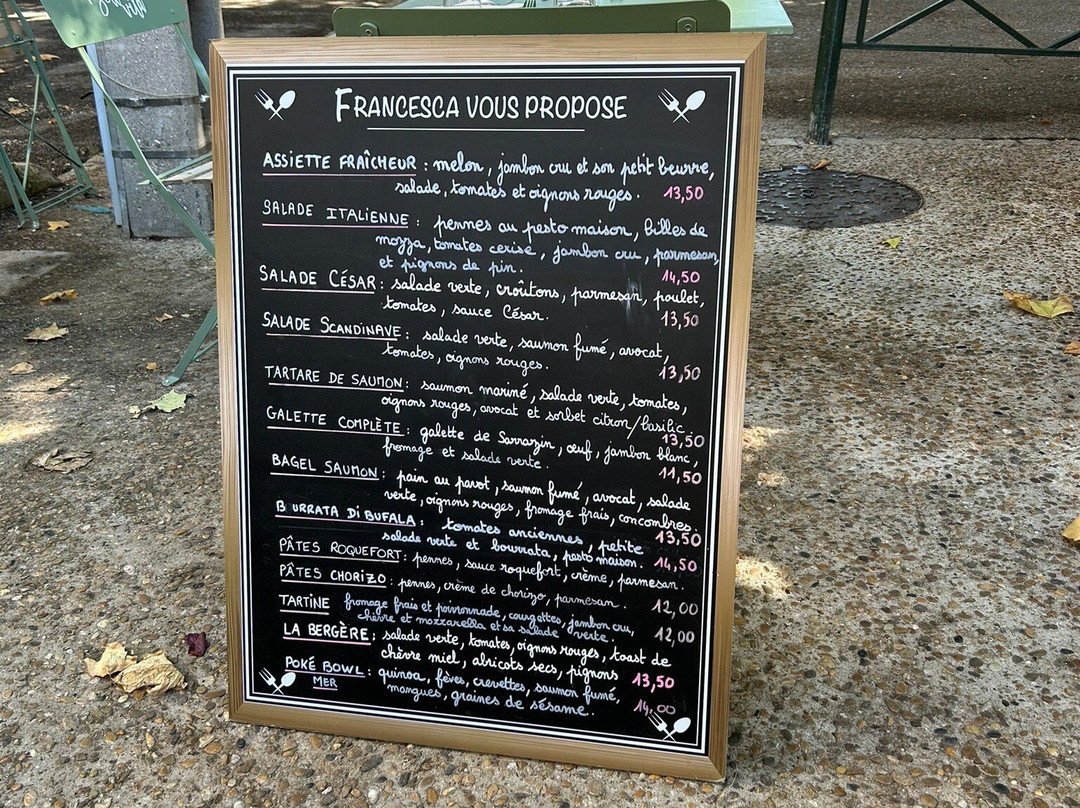 FRANCESCA VOUS PROPOSE
ASSIETTE FRAÎCHEUR : melon, jambon cru et son petit beurre,
salade, tomates et oignons rouges. 13,50
SALADE ITALIENNE : pennes au pesto maison, billes de
mozza, tomates cerise, jambon cru, parmesan,
et pignons de pin. 14,50
SALADE CÉSAR : salade verte, croûtons, parmesan, poulet,
tomates, sauce César. 13,50
SALADE SCANDINAVE : salade verte, saumon fumé, avocat,
tomates, oignons rouges. 13,50
TARTARE DE SAUMON : saumon mariné, salade verte, tomates,
oignons rouges, avocat et sorbet citron/basilic. 13,50
GALETTE COMPLÈTE : galette de Sarrazin, œuf, jambon blanc,
fromage et salade verte. 11,50
BAGEL SAUMON : pain au pavot, saumon fumé, avocat, salade
verte, oignons rouges, fromage frais, concombres. 13,50
BURRATA DI BUFALA : tomates anciennes, petite
salade verte et bourrata, pesto maison. 14,50
PÂTES ROQUEFORT : pennes, sauce roquefort, crème, parmesan. 12,00
PÂTES CHORIZO : pennes, crème de chorizo, parmesan. 12,00
TARTINE fromage frais et poivronnade, courgettes, jambon cru,
chèvre et mozzarella et sa salade verte.
LA BERGÈRE : salade verte, tomates, oignons rouges, toast de
chèvre miel, abricots secs, pignons 13,50
POKÉ BOWL : quinoa, fèves, crevettes, saumon fumé,
MER mangues, graines de sésame. 14,00